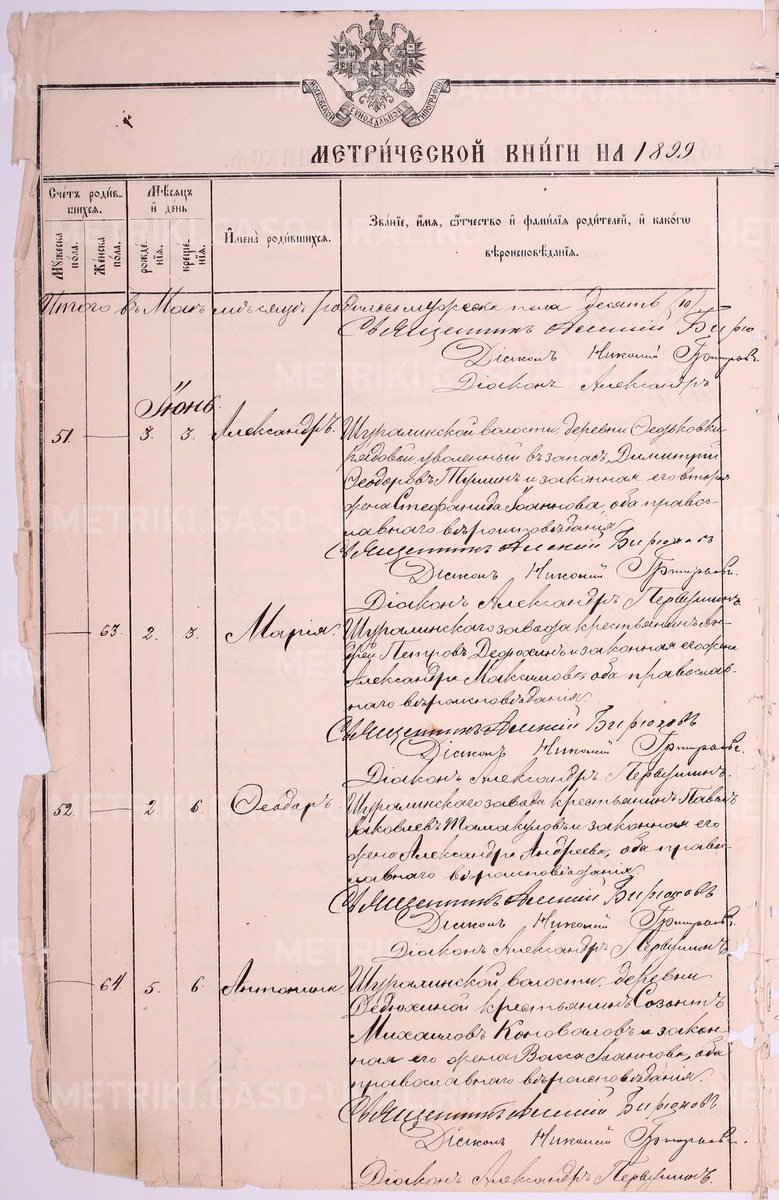 МОСКОВСКОЙ СѴНОДАЛЬНОЙ ТИПОГРАФІИ
МЕТРИ́ЧЕСКОЙ КНИ́ГИ НА 1899
Сче́тъ роди́вшихся.
Мѣ́сяцъ и́ де́нь
И҆мена̀ роди́вшихся.
Зва́нїе, и҆́мя, ѻ҆́тчество и҆ фамилїя роди́телей, и҆ како́гѡ вѣроисповѣ́данїя.
Му́жеска по́ла.
Же́нска по́ла.
рожде́нїя.
креще́нїя.
Итого въ Маѣ мѣсяцѣ родилось мужеска пола десять (10)
Священникъ Алексій Бирю
Діаконъ Николай Григорьев.
Діаконъ Александръ
Іюнь.
51. 3. 3. Александръ
Шуралинской волости, деревни Ѳедьковки
рядовой, уволенный въ запасъ, Димитрій
Ѳеодоровъ и законная его вторая
жена Стефанида Іоаннова, оба правос-
лавнаго вѣроисповѣданія
Священникъ Алексій Бирюковъ
Діаконъ Николай Григорьев.
Діаконъ Александръ Первушинъ.
63. 2. 3. Марія.
Шуралинскаго завода крестьянинъ Ан-
дрей Петровъ Дедюхинъ и законная его жена
Александра Максимова, оба православ-
наго вѣроисповѣданія.
Священникъ Алексій Бирюковъ
Діаконъ Николай Григорьев.
Діаконъ Александръ Первушинъ.
52. 2. 6. Ѳеодоръ.
Шуралинскаго завода крестьянинъ Павелъ
Іаковлевъ Тамакуловъ и законная его
жена Александра Андреева, оба правос-
лавнаго вѣроисповѣданія
Священникъ Алексій Бирюковъ
Діаконъ Николай Григорьев.
Діаконъ Александръ Первушинъ
64. 5. 6. Антонина.
Шуралинской волости, деревни
Дедюхиной крестьянинъ Созонтъ
Михаиловъ Коноваловъ и закон-
ная его жена Васса Іоаннова, оба
православнаго вѣроисповѣданія.
Священникъ Алексій Бирюковъ
Діаконъ Николай Григорьев.
Діаконъ Александръ Первушинъ.
METRIKI.GASO-URAL.RU